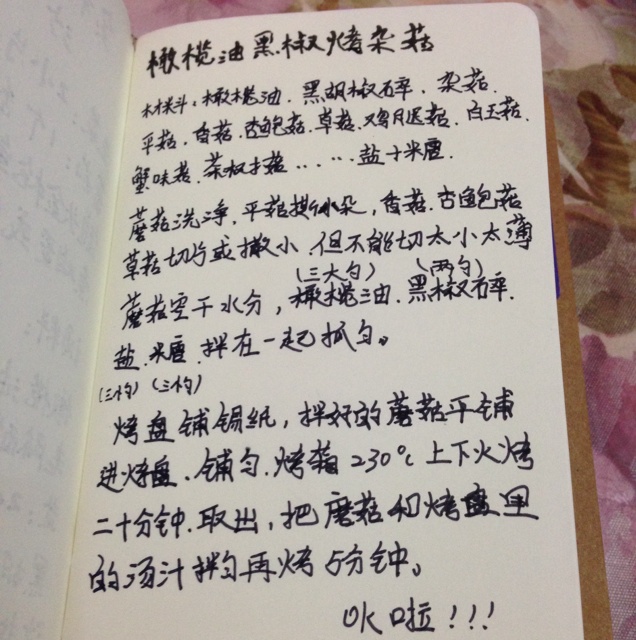 橄榄油黑椒烤杂菇
材料：橄榄油．黑胡椒碎．杂菇．
平菇．香菇．杏鲍菇．草菇．鸡腿菇．白玉菇．
蟹味菇．茶树菇……盐+米唐．
蘑菇洗净．平菇撕小朵，香菇．杏鲍菇
草菇切片或撒小．但不能切太小太薄
（三大勺） （两勺）
蘑菇空干水分，橄榄油．黑椒碎．
盐．米唐．拌在一起抓匀。
（三勺）（三勺）
烤盘铺锡纸，拌好的蘑菇平铺
进烤盘．铺匀．烤箱230℃上下火烤
二十分钟．取出，把蘑菇和烤盘里
的汤汁拌匀再烤5分钟。
OK啦！！！